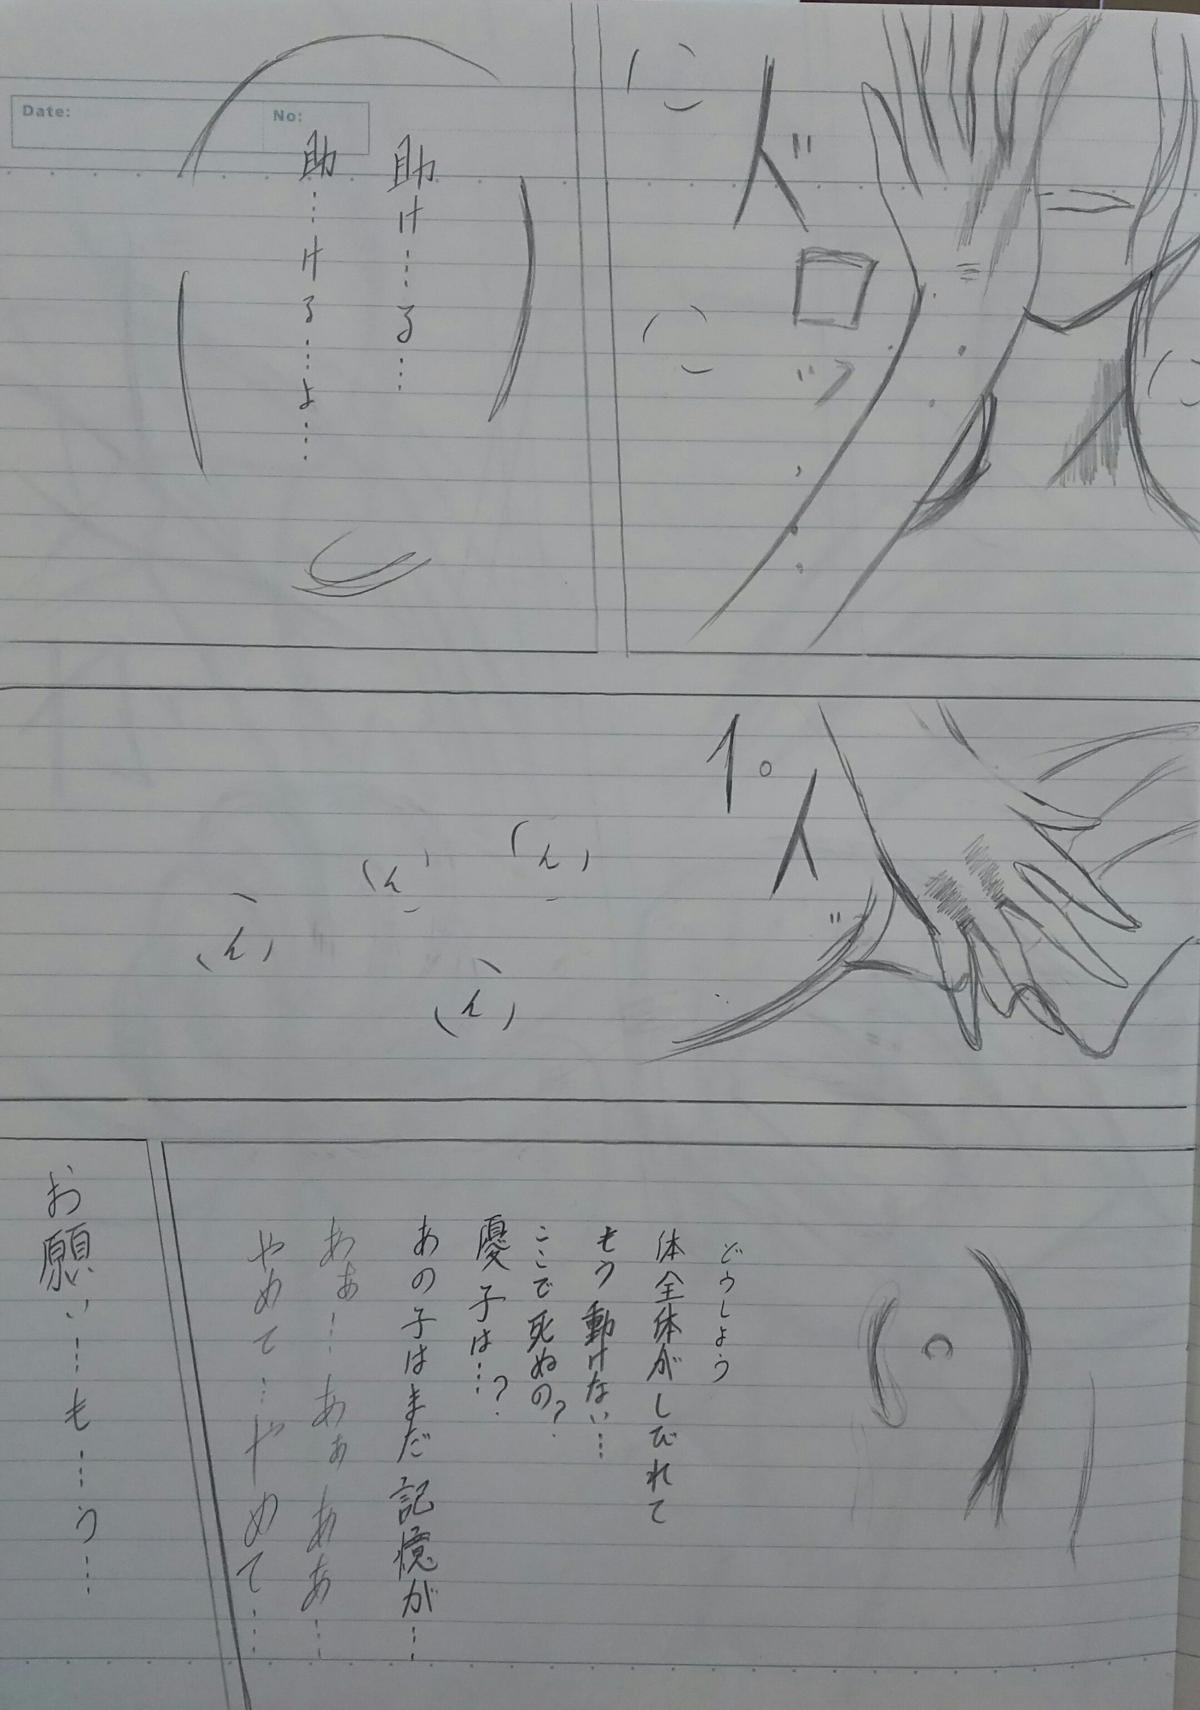 ドロッ
助け……る…
助…ける…よ…
ん
ん
ん
ん
どうしよう
体全体がしびれて
もう動けない…
ここで死ぬの?
優子は…?
あの子はまだ記憶が…
ああ…ああ ああ…
やめて…やめて…
お願い…も…う…
Date:
No: